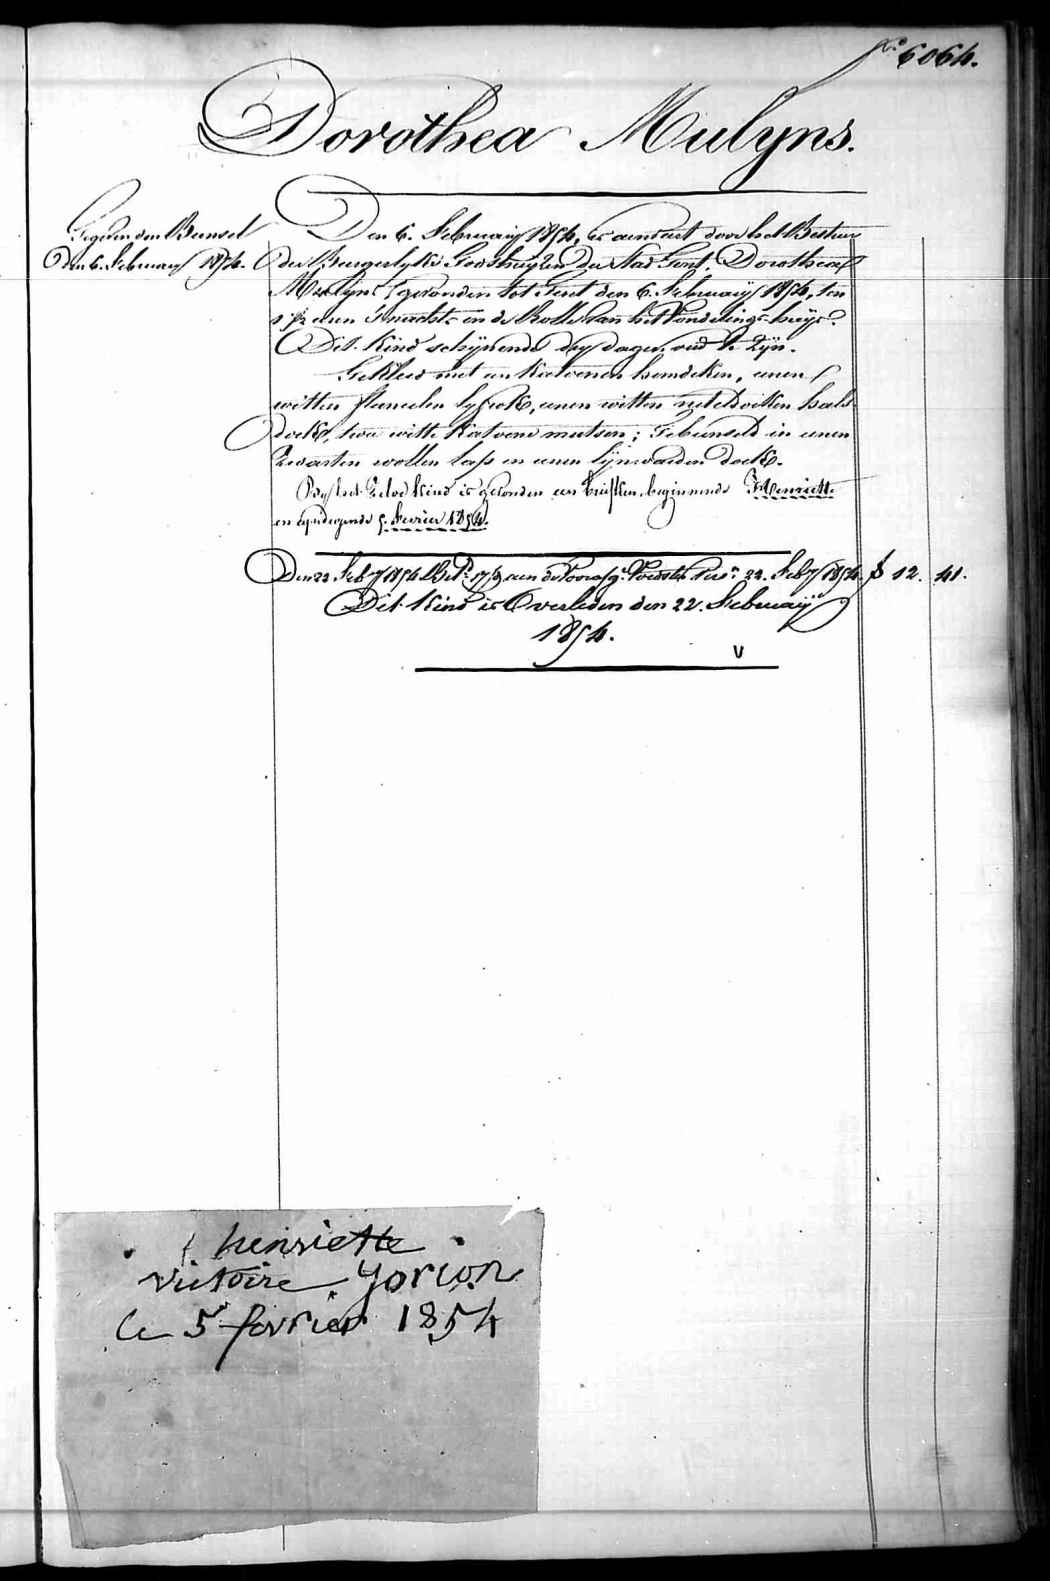 N.º 6064.
Dorothea Mulyns.
Gegeven den Bunsel
den 6. February 1854.
Den 6. February 1854, is aenveert door het Bestuer
der Burgerlyke Godshuyzen der Stad Gent, Dorothea
Mulyns gevonden tot Gent den 6. February 1854, ten
uren s'nachts in de Rolle van het Vondelings-huys.
Dit Kind schynende dry dagen oud te zyn.
Gekleed met een Katoenen hemdeken, eenen
witten flanelen lyfrok, eenen witten neteldoeken hals
doek, twee witte Katoene mutsen; Gebunseld in eenen
Zwarten wollen lap en eenen lynwaeden doek.
By het Zelve Kind is gevonden een briefken beginnende Henriette
en eyndigende 5. Fevrier 1854.
Den 22 Feby 1854 Bet. aen de Voedst. 22. Feby 1854 f 12. 41.
Dit Kind is Overleden den 22. February
1854.
V
henriette
victoire Gorion
le 5 fevrier 1854